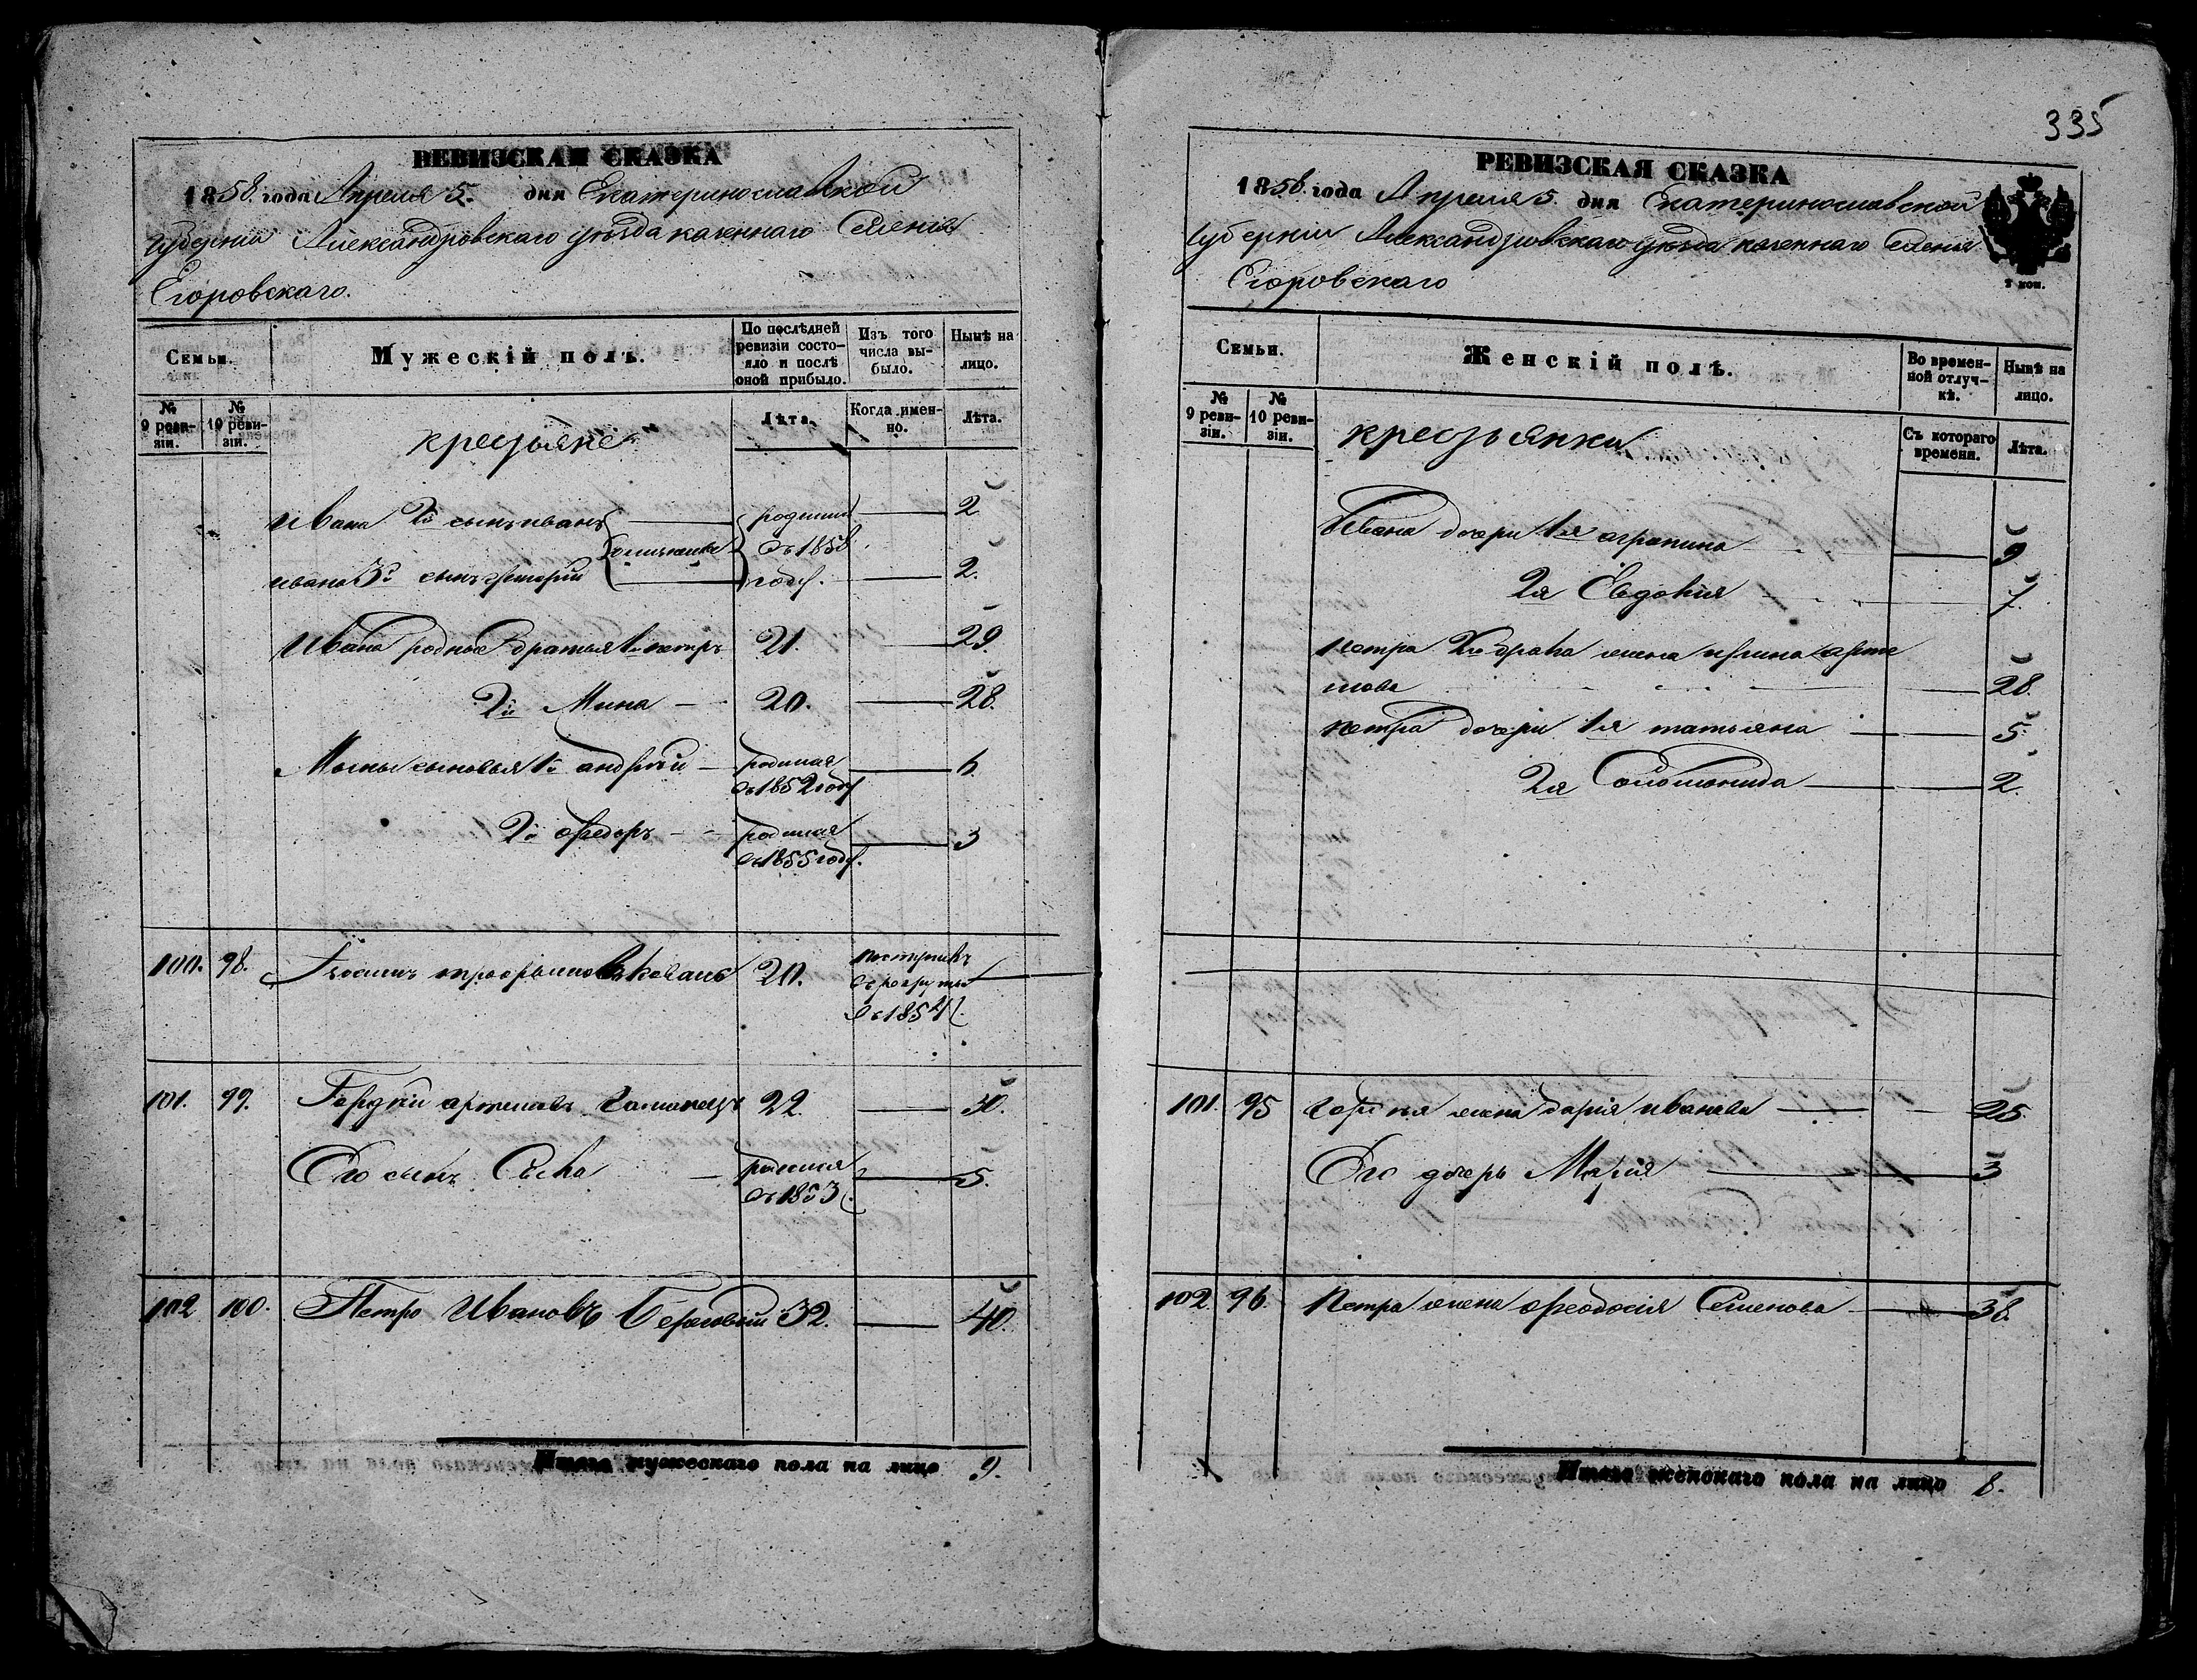 335
РЕВИЗСКАЯ СКАЗКА
1858. года Апреля 5. дня Екатеринославской
губернии Александровскаго уѣзда казеннаго Селения
Егоровскаго.
Семьи.
Мужескій полъ.
По послѣдней ревизіи состояло и послѣ оной прибыло.
Изъ того числа выбыло.
Нынѣ на лицо.
№ 9 ревизіи.
№ 10 ревизіи.
крестьяне
Лѣта.
Когда именно.
Лѣта.
Ивана 2й сынъ иванъ родился 2
въ 185
ивана 3й сынъ году. 2.
Ивана родные братья 1й петръ 21. 29.
2й Мина 20. 28.
Мины сыновья 1й андрѣй родился 6
въ 1852 году
2й федоръ родился 3
въ 1855 году.
100. 98. 20. поступилъ
въ рекруты
въ 1854
101. 99. Гордѣй артемовъ 22. 30.
Его сынъ Сава родился 5.
въ 1853
102 100. Петро Ивановъ Береговый 32. 40.
Итого мужескаго пола на лицо 9.
РЕВИЗСКАЯ СКАЗКА
1858. года Апреля 5. дня Екатеринославской
губернии Александровскаго уѣзда казеннаго селенія
Егоровскаго
2 коп.
Семьи.
Женскій полъ.
Во временной отлучкѣ.
Нынѣ на лицо.
№ 9 ревизіи.
№ 10 ревизіи.
крестьянки
Съ котораго времени.
Лѣта.
Ивана дочери 1я агрипина 9
2я Евдокия 7.
петра брата жена ирина
28.
петра дочери 1я татьяна 5.
2я Соломонида 2.
101. 95 жена дария иванова 25.
Его дочерь Мария 3
102. 96. Петра жена феодосия Семенова 38.
Итого женскаго пола на лицо 8.